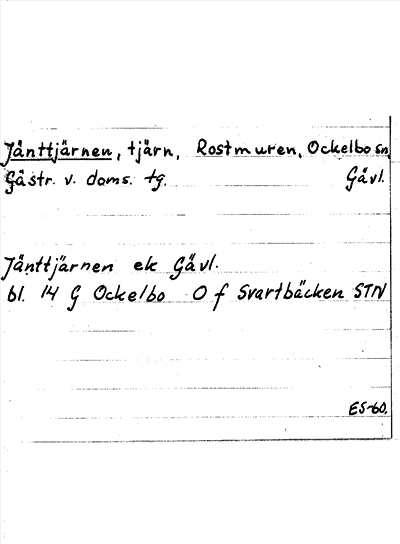 Jänttjärnen, tjärn, Rostmuren, Ockelbo sn,
Gästr. v. doms. tg. Gävl.
Jänttjärnen ek Gävl.
bl. 14 G Ockelbo O f Svartbäcken STN
ES-60.